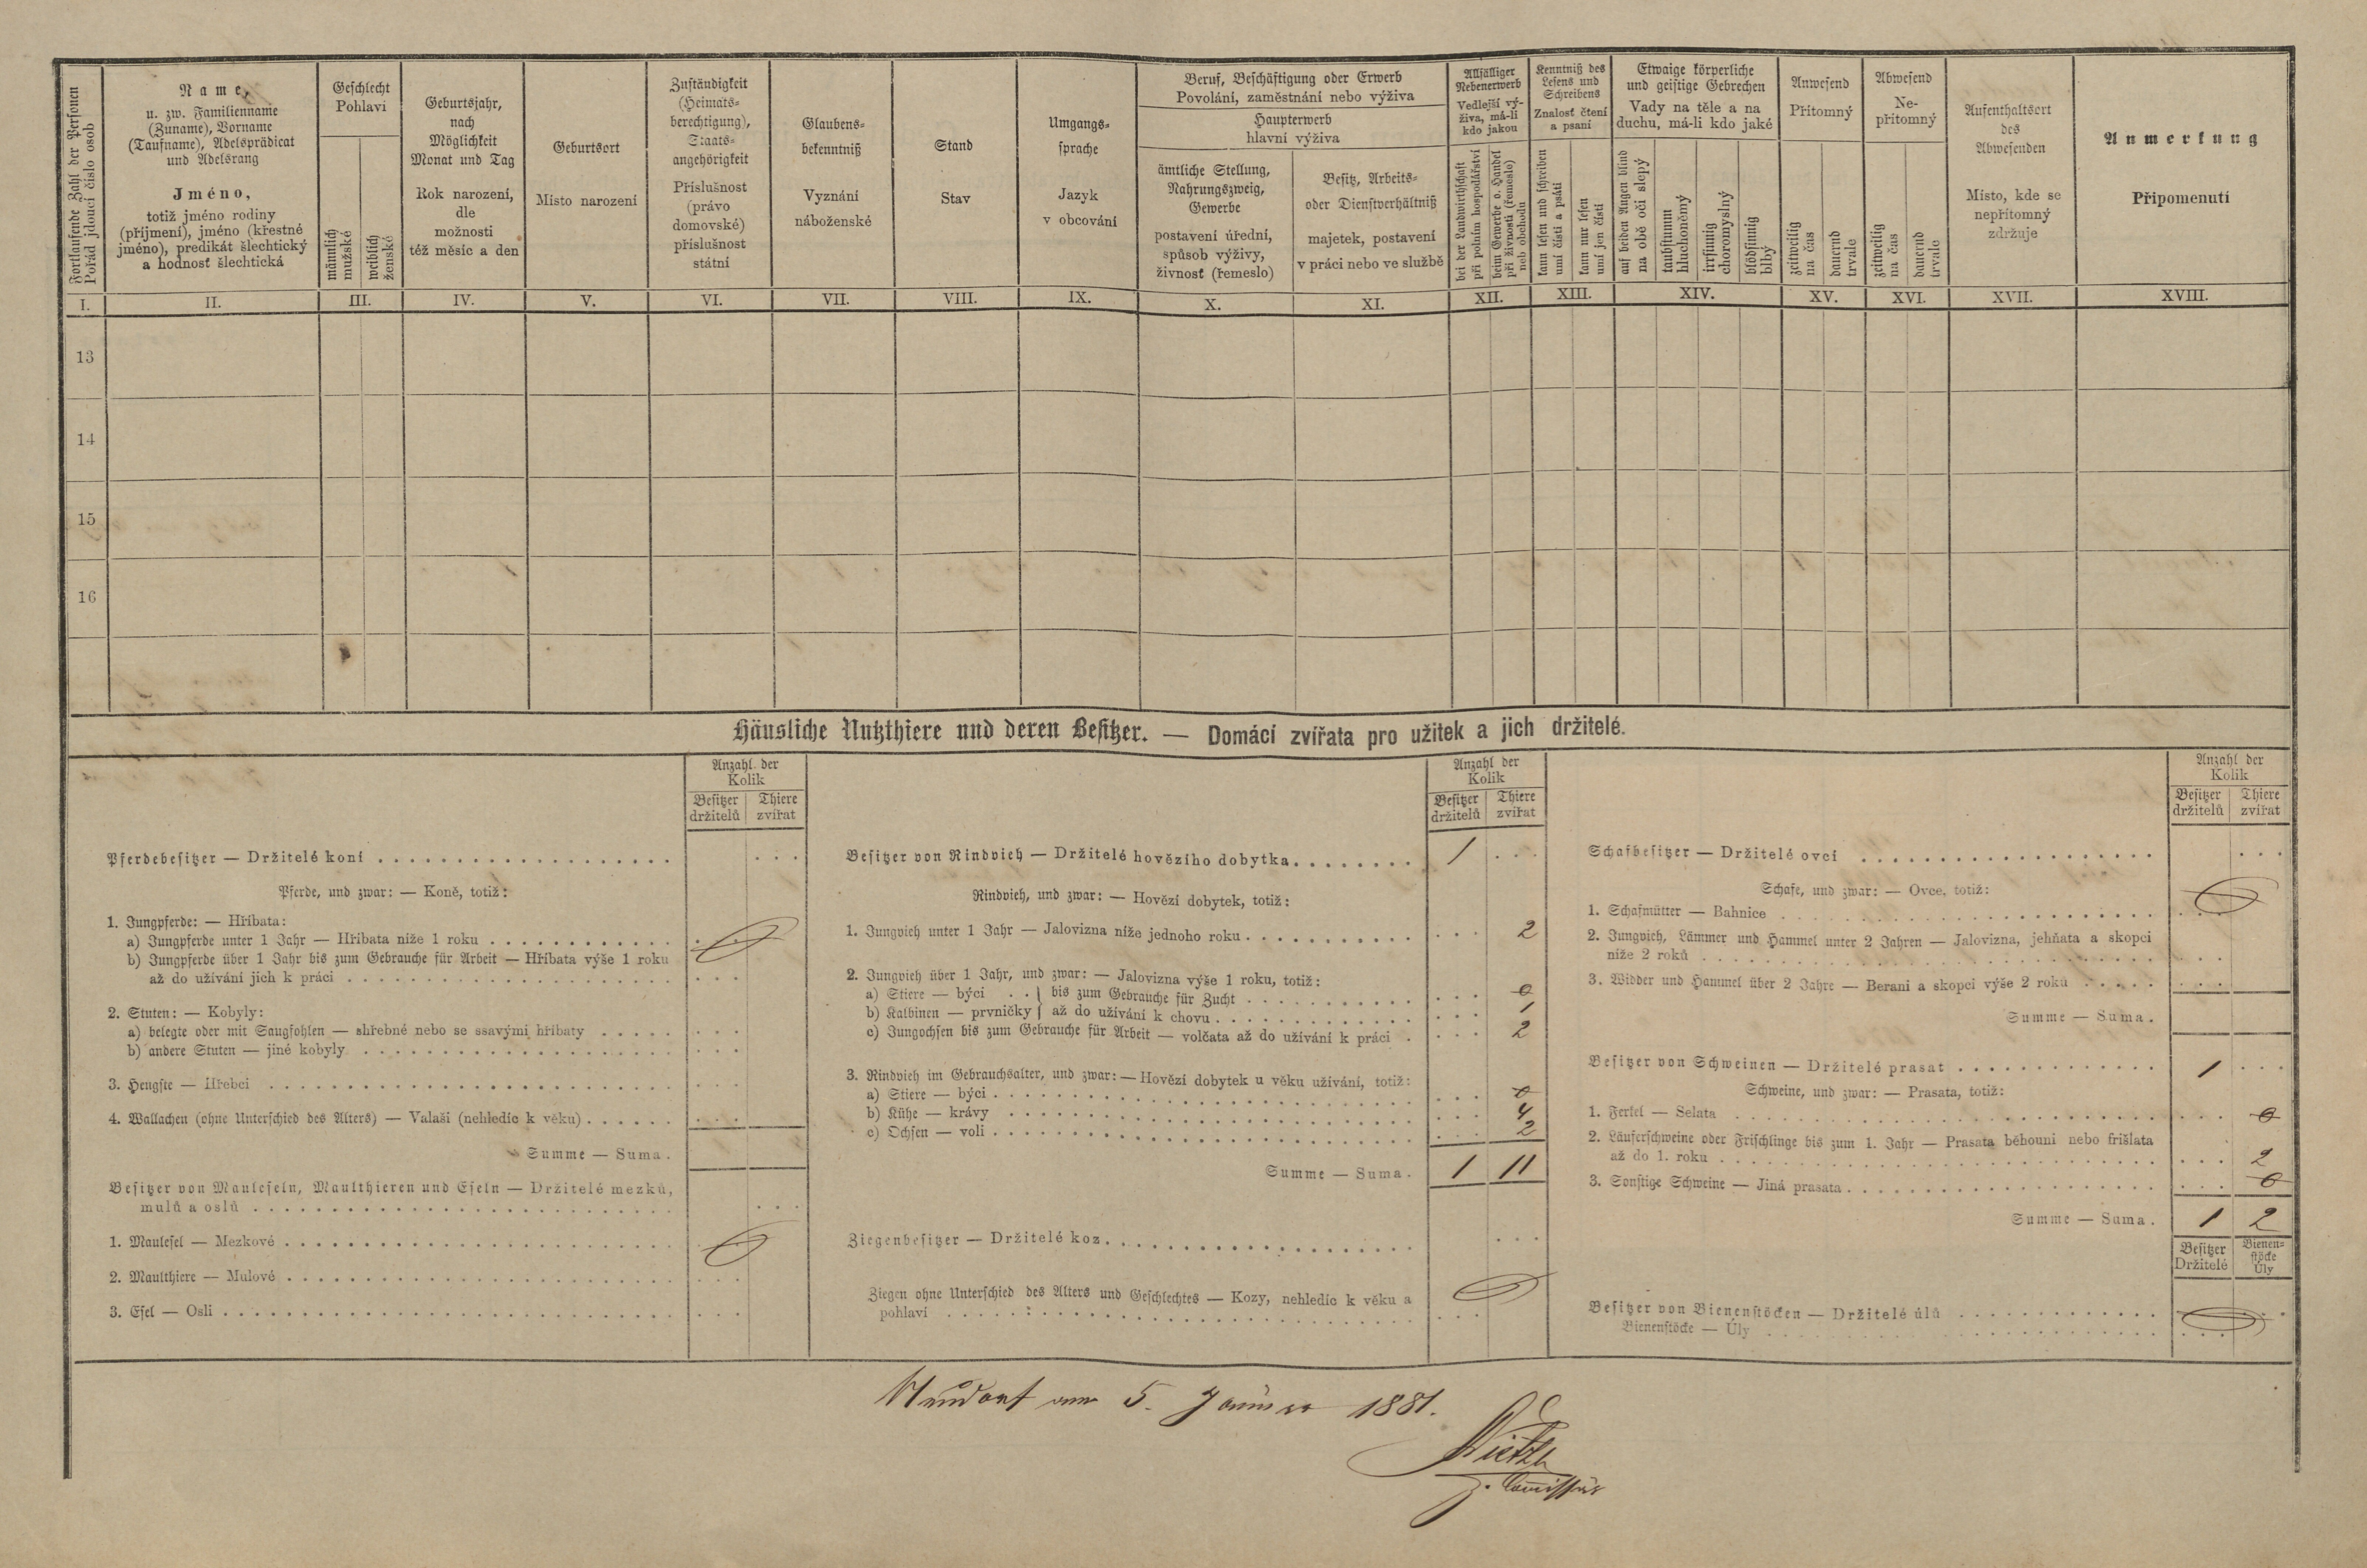 Fortlaufende Zahl der Personen
Pořád jdoucí číslo osob
Name,
u. zw. Familienname
(Zuname), Vorname
(Taufname), Adelsprädicat
und Adelsrang
Jméno,
totiž jméno rodiny
(příjmení), jméno (křestné
jméno), predikát šlechtický
a hodnosť šlechtická
Geschlecht
Pohlaví
männlich
mužské
weiblich
ženské
Geburtsjahr,
nach
Möglichkeit
Monat und Tag
Rok narození,
dle
možnosti
též měsíc a den
Geburtsort
Místo narození
Zuständigkeit
(Heimats-
berechtigung),
Staats-
angehörigkeit
Příslušnost
(právo
domovské)
příslušnost
státní
Glaubens-
bekenntniß
Vyznání
náboženské
Stand
Stav
Umgangs-
sprache
Jazyk
v obcování
Beruf, Beschäftigung oder Erwerb
Povolání, zaměstnání nebo výživa
Haupterwerb
hlavní výživa
ämtliche Stellung,
Nahrungszweig,
Gewerbe
postavení úřední,
spůsob výživy,
živnosť (řemeslo)
Besitz, Arbeits-
oder Dienstverhältniß
majetek, postavení
v práci nebo ve službě
Allfälliger
Nebenerwerb
Vedlejší vý-
živa, má-li
kdo jakou
bei der Landwirthschaft
při polním hospodářství
beim Gewerbe o. Handel
při živnosti (řemeslo)
neb obchodu
Kenntniß des
Lesens und
Schreibens
Znalosť čtení
a psaní
kann lesen und schreiben
umí čísti a psáti
kann nur lesen
umí jen čísti
Etwaige körperliche
und geistige Gebrechen
Vady na těle a na
duchu, má-li kdo jaké
auf beiden Augen blind
na obě oči slepý
taubstumm
hluchoněmý
irrsinnig
choromyslný
blödsinnig
blbý
Anwesend
Přítomný
zeitweilig
na čas
dauernd
trvale
Abwesend
Ne-
přítomný
zeitweilig
na čas
dauernd
trvale
Aufenthaltsort
des
Abwesenden
Místo, kde se
nepřítomný
zdržuje
Anmerkung
Připomenutí
I. II. III. IV. V. VI. VII. VIII. IX. X. XI. XII. XIII. XIV. XV. XVI. XVII. XVIII.
13
14
15
16
Häusliche Nutzthiere und deren Besitzer. — Domácí zvířata pro užitek a jich držitelé.
Anzahl der
Kolik
Besitzer Thiere
držitelů zvířat
Pferdebesitzer — Držitelé koní
Pferde, und zwar: — Koně, totiž:
1. Jungpferde: — Hříbata:
a) Jungpferde unter 1 Jahr — Hříbata níže 1 roku
b) Jungpferde über 1 Jahr bis zum Gebrauche für Arbeit — Hříbata výše 1 roku
až do užívání jich k práci
2. Stuten: — Kobyly:
a) belegte oder mit Saugfohlen — shřebné nebo se ssavými hříbaty
b) andere Stuten — jiné kobyly
3. Hengste — Hřebci
4. Wallachen (ohne Unterschied des Alters) — Valaši (nehledíc k věku)
Summe — Suma.
Besitzer von Mauleseln, Maulthieren und Eseln — Držitelé mezků,
mulů a oslů
1. Maulesel — Mezkové
2. Maulthiere — Mulové
3. Esel — Osli
Anzahl der
Kolik
Besitzer Thiere
držitelů zvířat
Besitzer von Rindvieh — Držitelé hovězího dobytka 1
Rindvieh, und zwar: — Hovězí dobytek, totiž:
1. Jungvieh unter 1 Jahr — Jalovizna níže jednoho roku 2
2. Jungvieh über 1 Jahr, und zwar: — Jalovizna výše 1 roku, totiž:
a) Stiere — býci } bis zum Gebrauche für Zucht 0
b) Kalbinen — prvničky } až do užívání k chovu 1
c) Jungochsen bis zum Gebrauche für Arbeit — volčata až do užívání k práci 2
3. Rindvieh im Gebrauchsalter, und zwar: — Hovězí dobytek u věku užívání, totiž:
a) Stiere — býci 0
b) Kühe — krávy 4
c) Ochsen — voli 2
Summe — Suma. 1 11
Ziegenbesitzer — Držitelé koz
Ziegen ohne Unterschied des Alters und Geschlechtes — Kozy, nehledíc k věku a
pohlaví
Anzahl der
Kolik
Besitzer Thiere
držitelů zvířat
Schafbesitzer — Držitelé ovcí
Schafe, und zwar: — Ovce, totiž:
1. Schafmütter — Bahnice
2. Jungvieh, Lämmer und Hammel unter 2 Jahren — Jalovizna, jehňata a skopci
níže 2 roků
3. Widder und Hammel über 2 Jahre — Berani a skopci výše 2 roků
Summe — Suma.
Besitzer von Schweinen — Držitelé prasat 1
Schweine, und zwar: — Prasata, totiž:
1. Ferkel — Selata 0
2. Läuferschweine oder Frischlinge bis zum 1. Jahr — Prasata běhouni nebo frišlata
až do 1. roku 2
3. Sonstige Schweine — Jiná prasata 0
Summe — Suma. 1 2
Besitzer Bienen-
Držitelé stöcke
Úly
Besitzer von Bienenstöcken — Držitelé úlů
Bienenstöcke — Úly
Neudorf am 5. Jänner 1881.